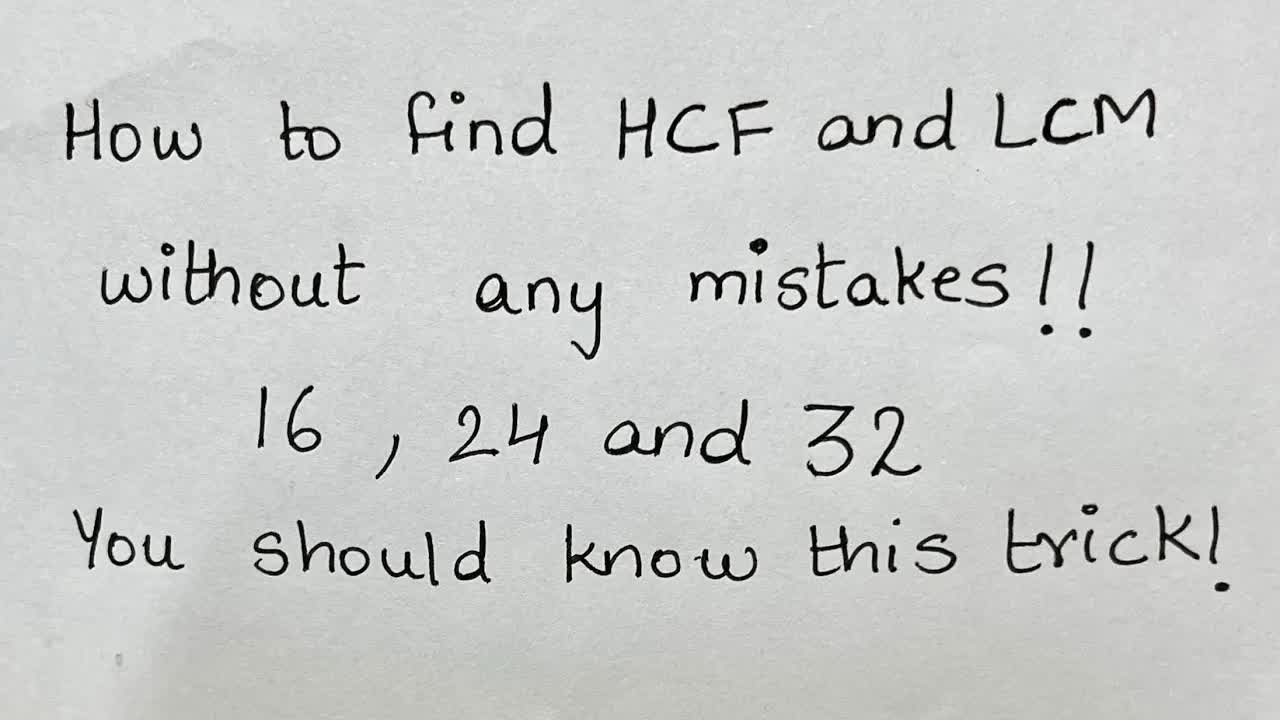 How to find HCF and LCM
without any mistakes!!
16, 24 and 32
You should know this trick!